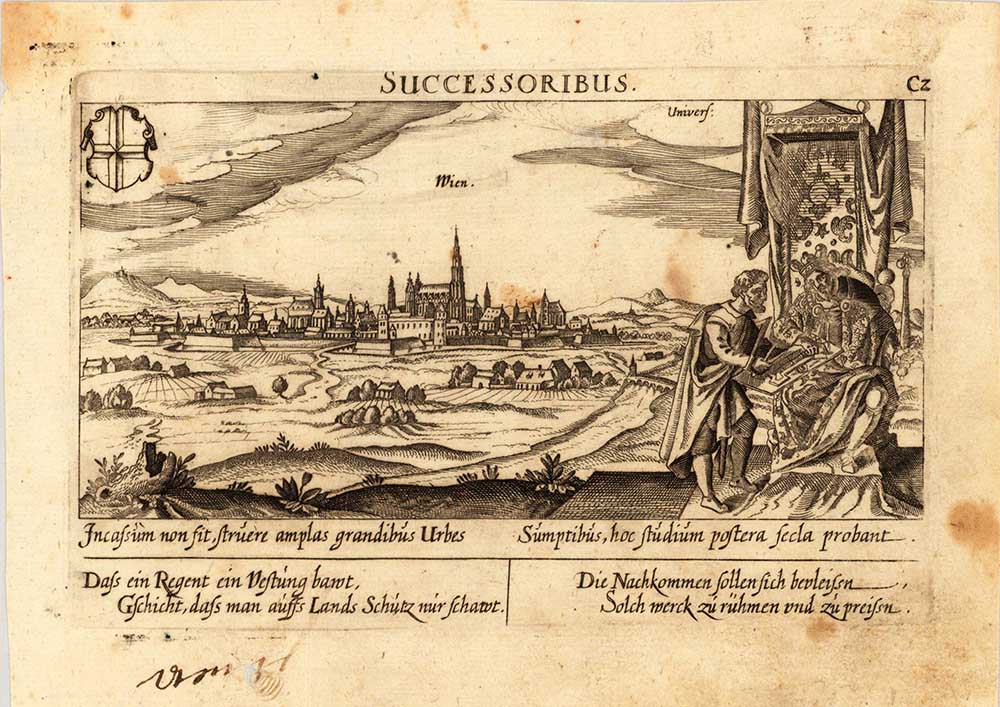 SUCCESSORIBUS.
C2
Univers:
Wien.
Incassùm non fit, struere amplas grandibùs Urbes
Sùmptibùs, hoc stùdium postera secla probant.
Dass ein Regent ein Vestùng bawt,
Gschicht, dass man aùffs Lands Schùtz nùr schawt.
Die Nachkommen sollen sich bevleissn
Solch werck zù rùhmen vnd zù preissn.